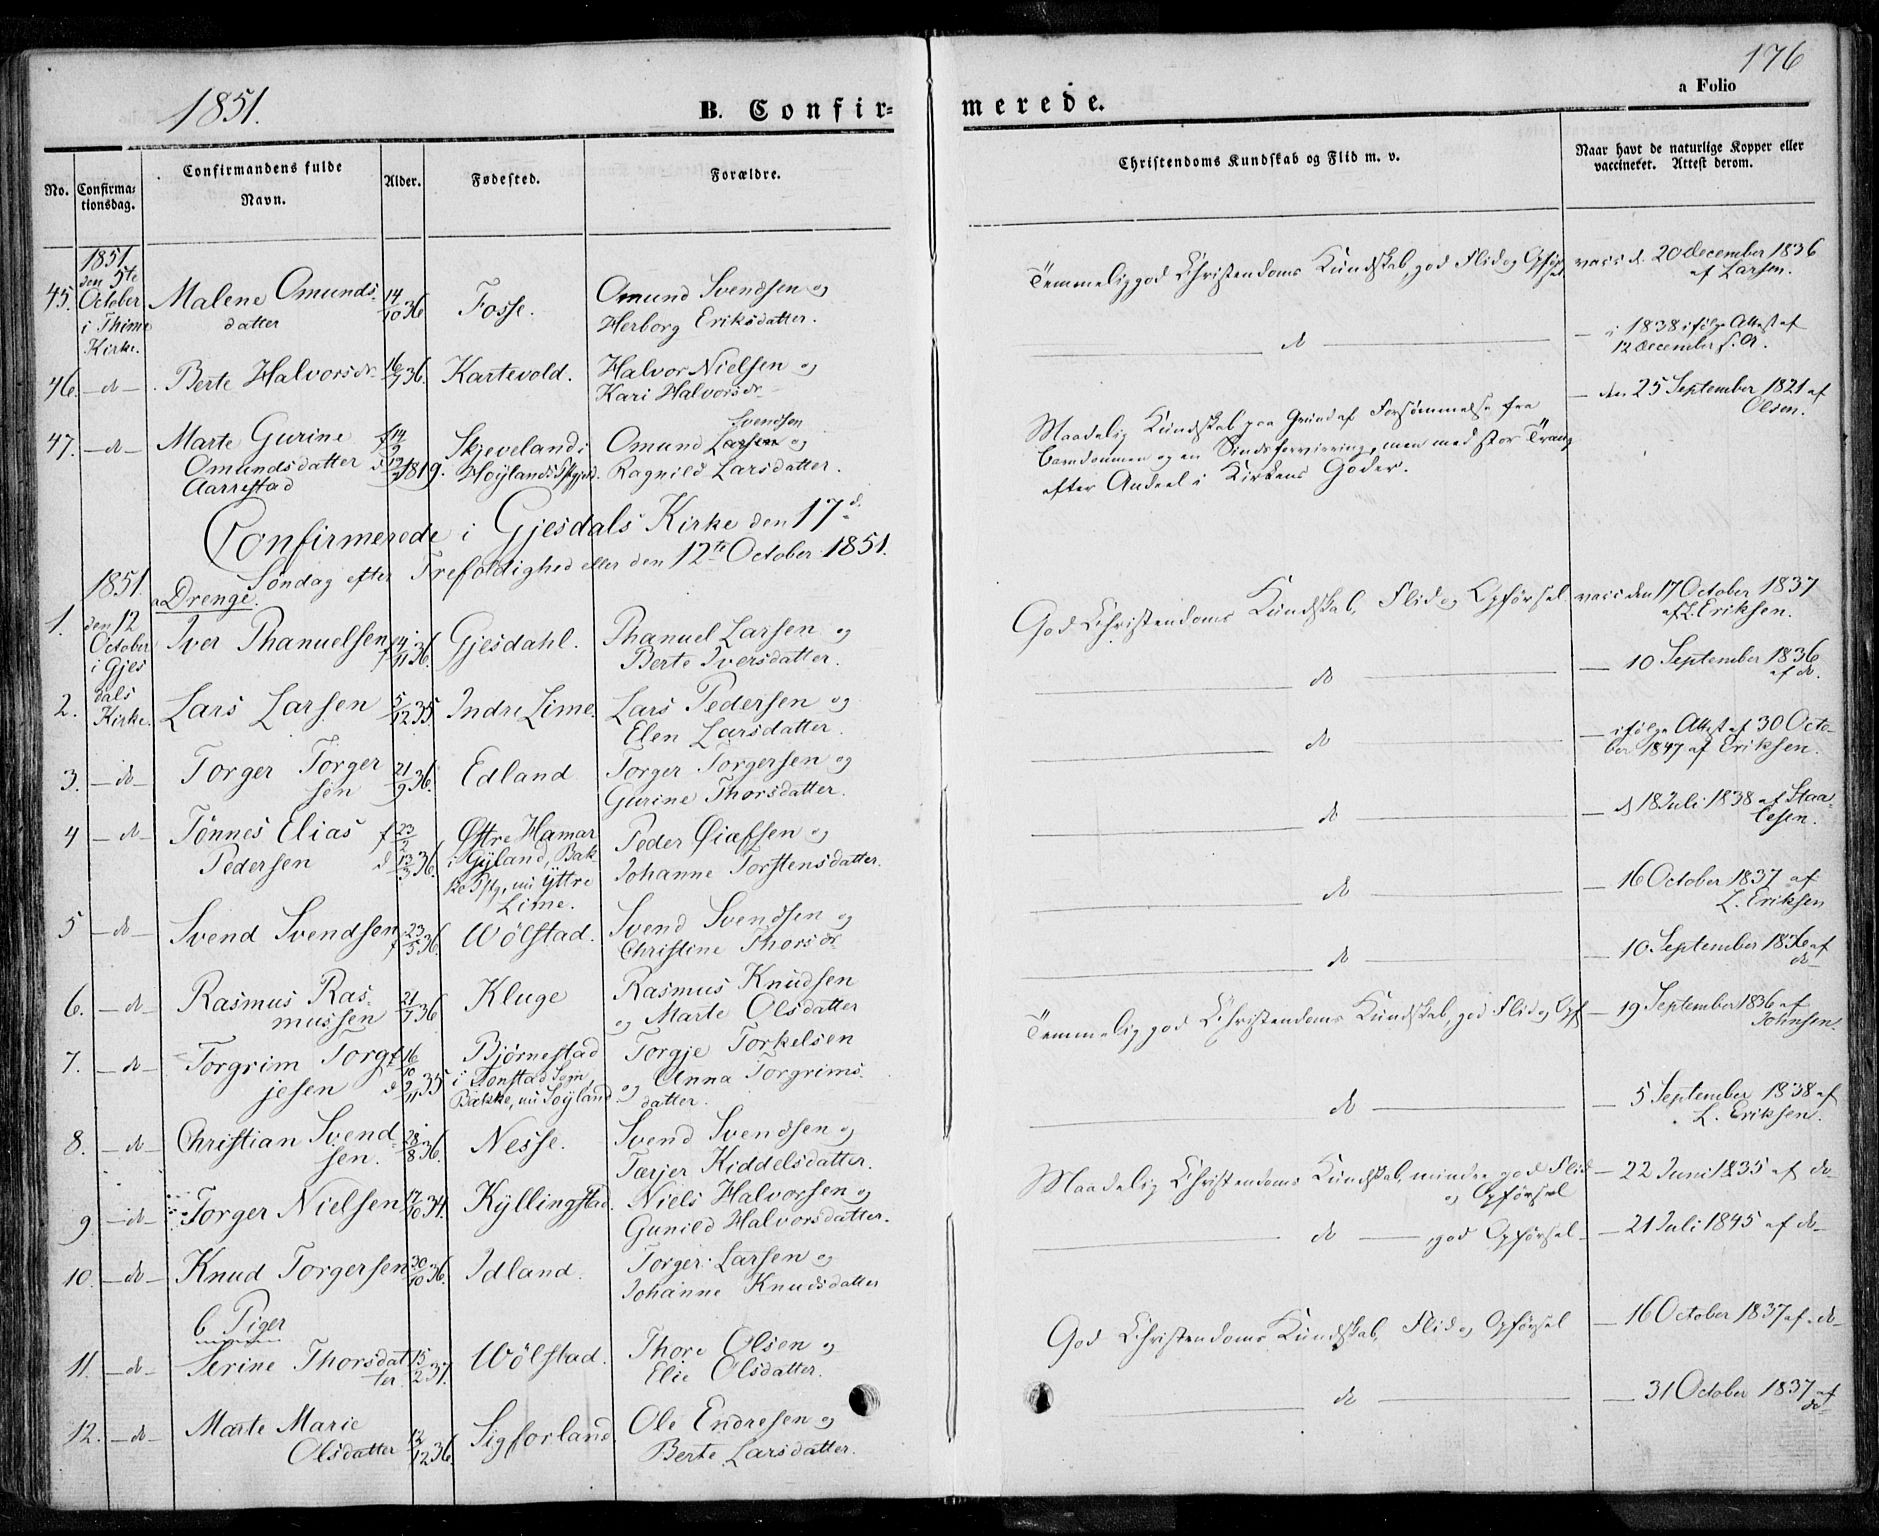 1851.
B. Confir-
merede.
176
a Folio
No.
Confirma-
tionsdag.
Confirmandens fulde
Navn.
Alder.
Fødested.
Forældre.
Christendoms Kundskab og Flid m. v.
Naar havt de naturlige Kopper eller
vaccineret. Attest derom.
45.
1851.
den 5te
October
i Thime
Kirke.
Malene Omunds-
datter
14/10 36
Fosse.
Omund Svendsen og
Herborg Eriksdatter.
Temmelig god Christendoms Kundskab, god Flid og Opførsel
vacc d. 20 december 1836
af Larsen.
46. — do —
Berte Halvorsdr
16/7 36.
Kartevold.
Halvor Nielsen og
Kari Halvorsdr
— do —
— i 1838 ifølge Attest af
12 december s. A.
47. — do —
Marte Gurine
Omundsdatter
Aarrestad
1819.
Skjeveland i
Høylands
Svendsen
Omund Larsen og
Ragnild Larsdatter.
Maadelig Kundskab paa Grund af Forsømmelse fra
Barndommen og en Sindsforvirring, men med stor Trang
efter Andeel i Kirkens Goder.
— den 25 September 1821 af
Olsen.
Confirmerede i Gjesdals Kirke den 17d.
Søndag efter Trefoldighed eller den 12te October 1851.
1851.
a Drenge.
1.
den 12
October
i Gjes
dals
Kirke.
Iver Phanuelsen
f 14/11 36.
Gjesdahl.
Phanuel Larsen og
Berte Iversdatter.
God Christendoms Kundskab, Flid og Opførsel
vacc den 17 October 1837
af L. Eriksen.
2.
Lars Larsen
5/12 35.
Indre Lime.
Lars Pedersen og
Elen Larsdatter.
— do —
— 10 September 1836
af do.
3. — do —
Torger Torger
sen
21/9 36.
Edland
Torger Torgersen og
Gurine Thorsdatter.
— do —
— ifølge Attest af 30 Octo-
ber 1847 af Eriksen.
4 — do —
Tønnes Elias
Pedersen
f 23/2
d 13/3 36.
Østre Hamar
i Gyland, Bak
ke Pstg, nu Yttre
Lime.
Peder
og
Johanne Torstensdatter.
— do —
— d 18 Juli 1838 af Staa-
lesen.
5 — do —
Svend Svendsen
f 23/5 36.
Wølstad.
Svend Svendsen og
Christine Thorsdr
— do —
— 16 October 1837 af
L. Eriksen
6. — do —
Rasmus Ras-
mussen
21/7 36.
Kluge
Rasmus Knudsen
og Marte Olsdatter
— do —
— 10 September 1836 af
do —
7. — do —
Torgrim Torg
jesen
f 16/10
d 9/11 35
Bjørnestad
i Tonstad Sogn,
Bakke, nu Søyland.
Torgje Torkelsen
og Anna Torgrims-
datter.
Temmelig god Christendoms Kundskab, god Flid og Opf
— 19 September 1836 af
Johnsen.
8. — do —
Christian Svend-
sen.
28/8 36.
Nesse.
Svend Svendsen og
Tærjer Kiddelsdatter.
— do —
— 5 September 1838 af
L. Eriksen.
9. — do —
Torger Nielsen
34.
Kyllingstad.
Niels Halvorsen og
Gunild Halvorsdatter.
Maadelig Christendoms Kundskab, mindre god Flid
og Opførsel
— 22 Juni 1835 af do —
10. — do —
Knud Torgersen
30/10 36.
Idland.
Torger Larsen og
Johanne Knudsdatter
— do — , god Opførsel —
— 21 Juli 1845 af do —
b Piger
11. — do —
Serine Thorsdat
ter.
15/2 37.
Wølstad.
Thore Olsen og
Elie Olsdatter.
God Christendoms Kundskab, Flid og Opførsel
— 16 October 1837 af do —
12. — do —
Marte Marie
Olsdatter
12/12 36.
Sigforland
Ole Endresen og
Berte Larsdatter.
— do —
— 31 October 1837 af
do —